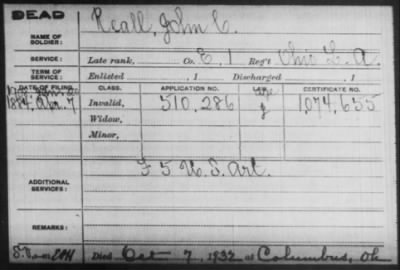 DEAD
NAME OF SOLDIER: Reall, John C.
SERVICE: Late rank, Co. E, 1 Reg't Ohio L. A.
TERM OF SERVICE: Enlisted , 1 Discharged , 1
DATE OF FILING. CLASS. APPLICATION NO. CERTIFICATE NO.
1884, Apr. 7 Invalid, 510,286 1,074,655
Widow,
Minor,
ADDITIONAL SERVICES: F 5 U. S. Art.
REMARKS:
Died Oct 7, 1932 at Columbus, Oh